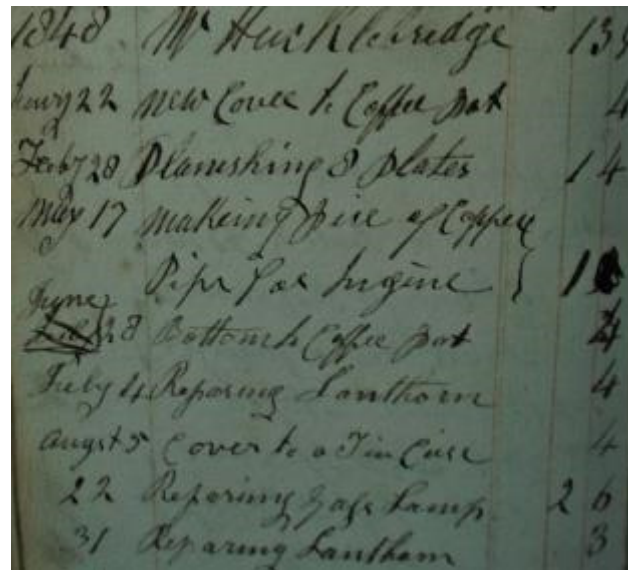 1848 Mr Hucklebridge 13
22 new Cover to Coffee pot 4
Feby 28 Planishing 8 plates 14
May 17 making pice of Copper
Pipe for Ingine } 1
June 28 Bottom to Coffee pot 4
July 4 Reparing Lanthorn 4
Augst 5 Cover to a Tin Case 4
22 Reparing Lamp 2 6
31 Reparing Lanthorn 3